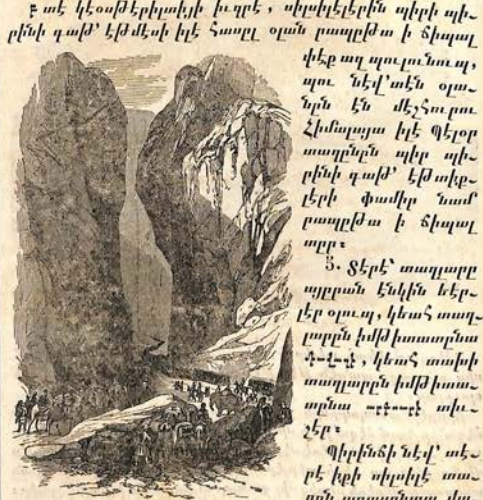 տէ կէօսթէրիլտիյի իւզրէ, սիլսիլէլէրին պիրի պի-
րինի գաթ՚ էթմէսի իլէ հասըլ օլան րապըթա ի ճիպալ
փէք ազ պուլունուպ,
պու նէվ՚տէն օլա-
նըն էն մէշհուրու
Հիմալայա իլէ Պէլօր
տաղընըն պիր պի-
րինի գաթ՚ էթտիք-
լէրի Փամիր նամ
րապըթա ի ճիպալ
տըր։
5. Տէրէ՝ տաղլարը
այըրան էնկին եէր-
լէր օլուպ, կեահ տաղ-
լարըն իմթիտատընա
կեահ տախի
տաղլարըն իմթիտա-
տընա տիւ-
շէր։
Պիրինճի նէվ՚ տէ-
րէ իքի սիլսիլէ տա-